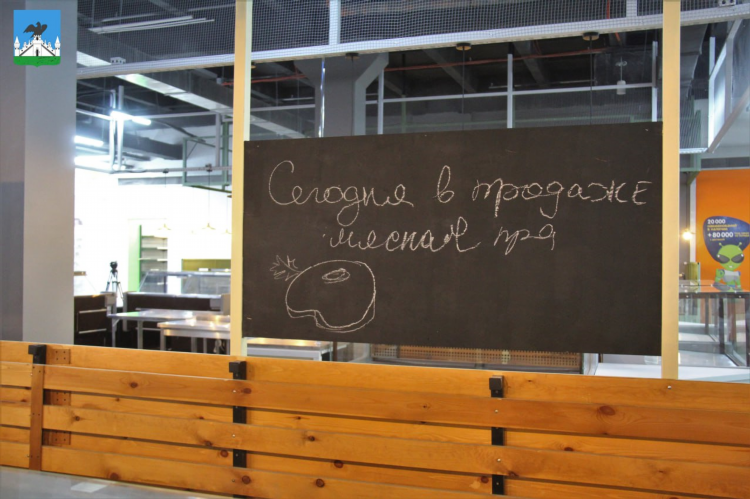 Сегодня в продаже
мясная пря
20 000
+ 80 000